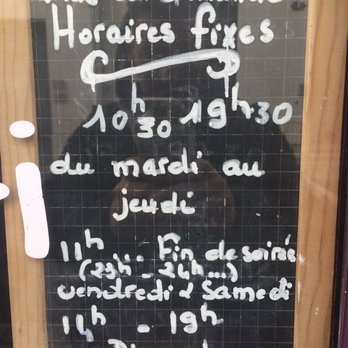 Horaires fixes
10h30 19h30
du mardi au
jeudi
11h ... Fin de soirée
(23h - 24h...)
vendredi & Samedi
14h - 19h